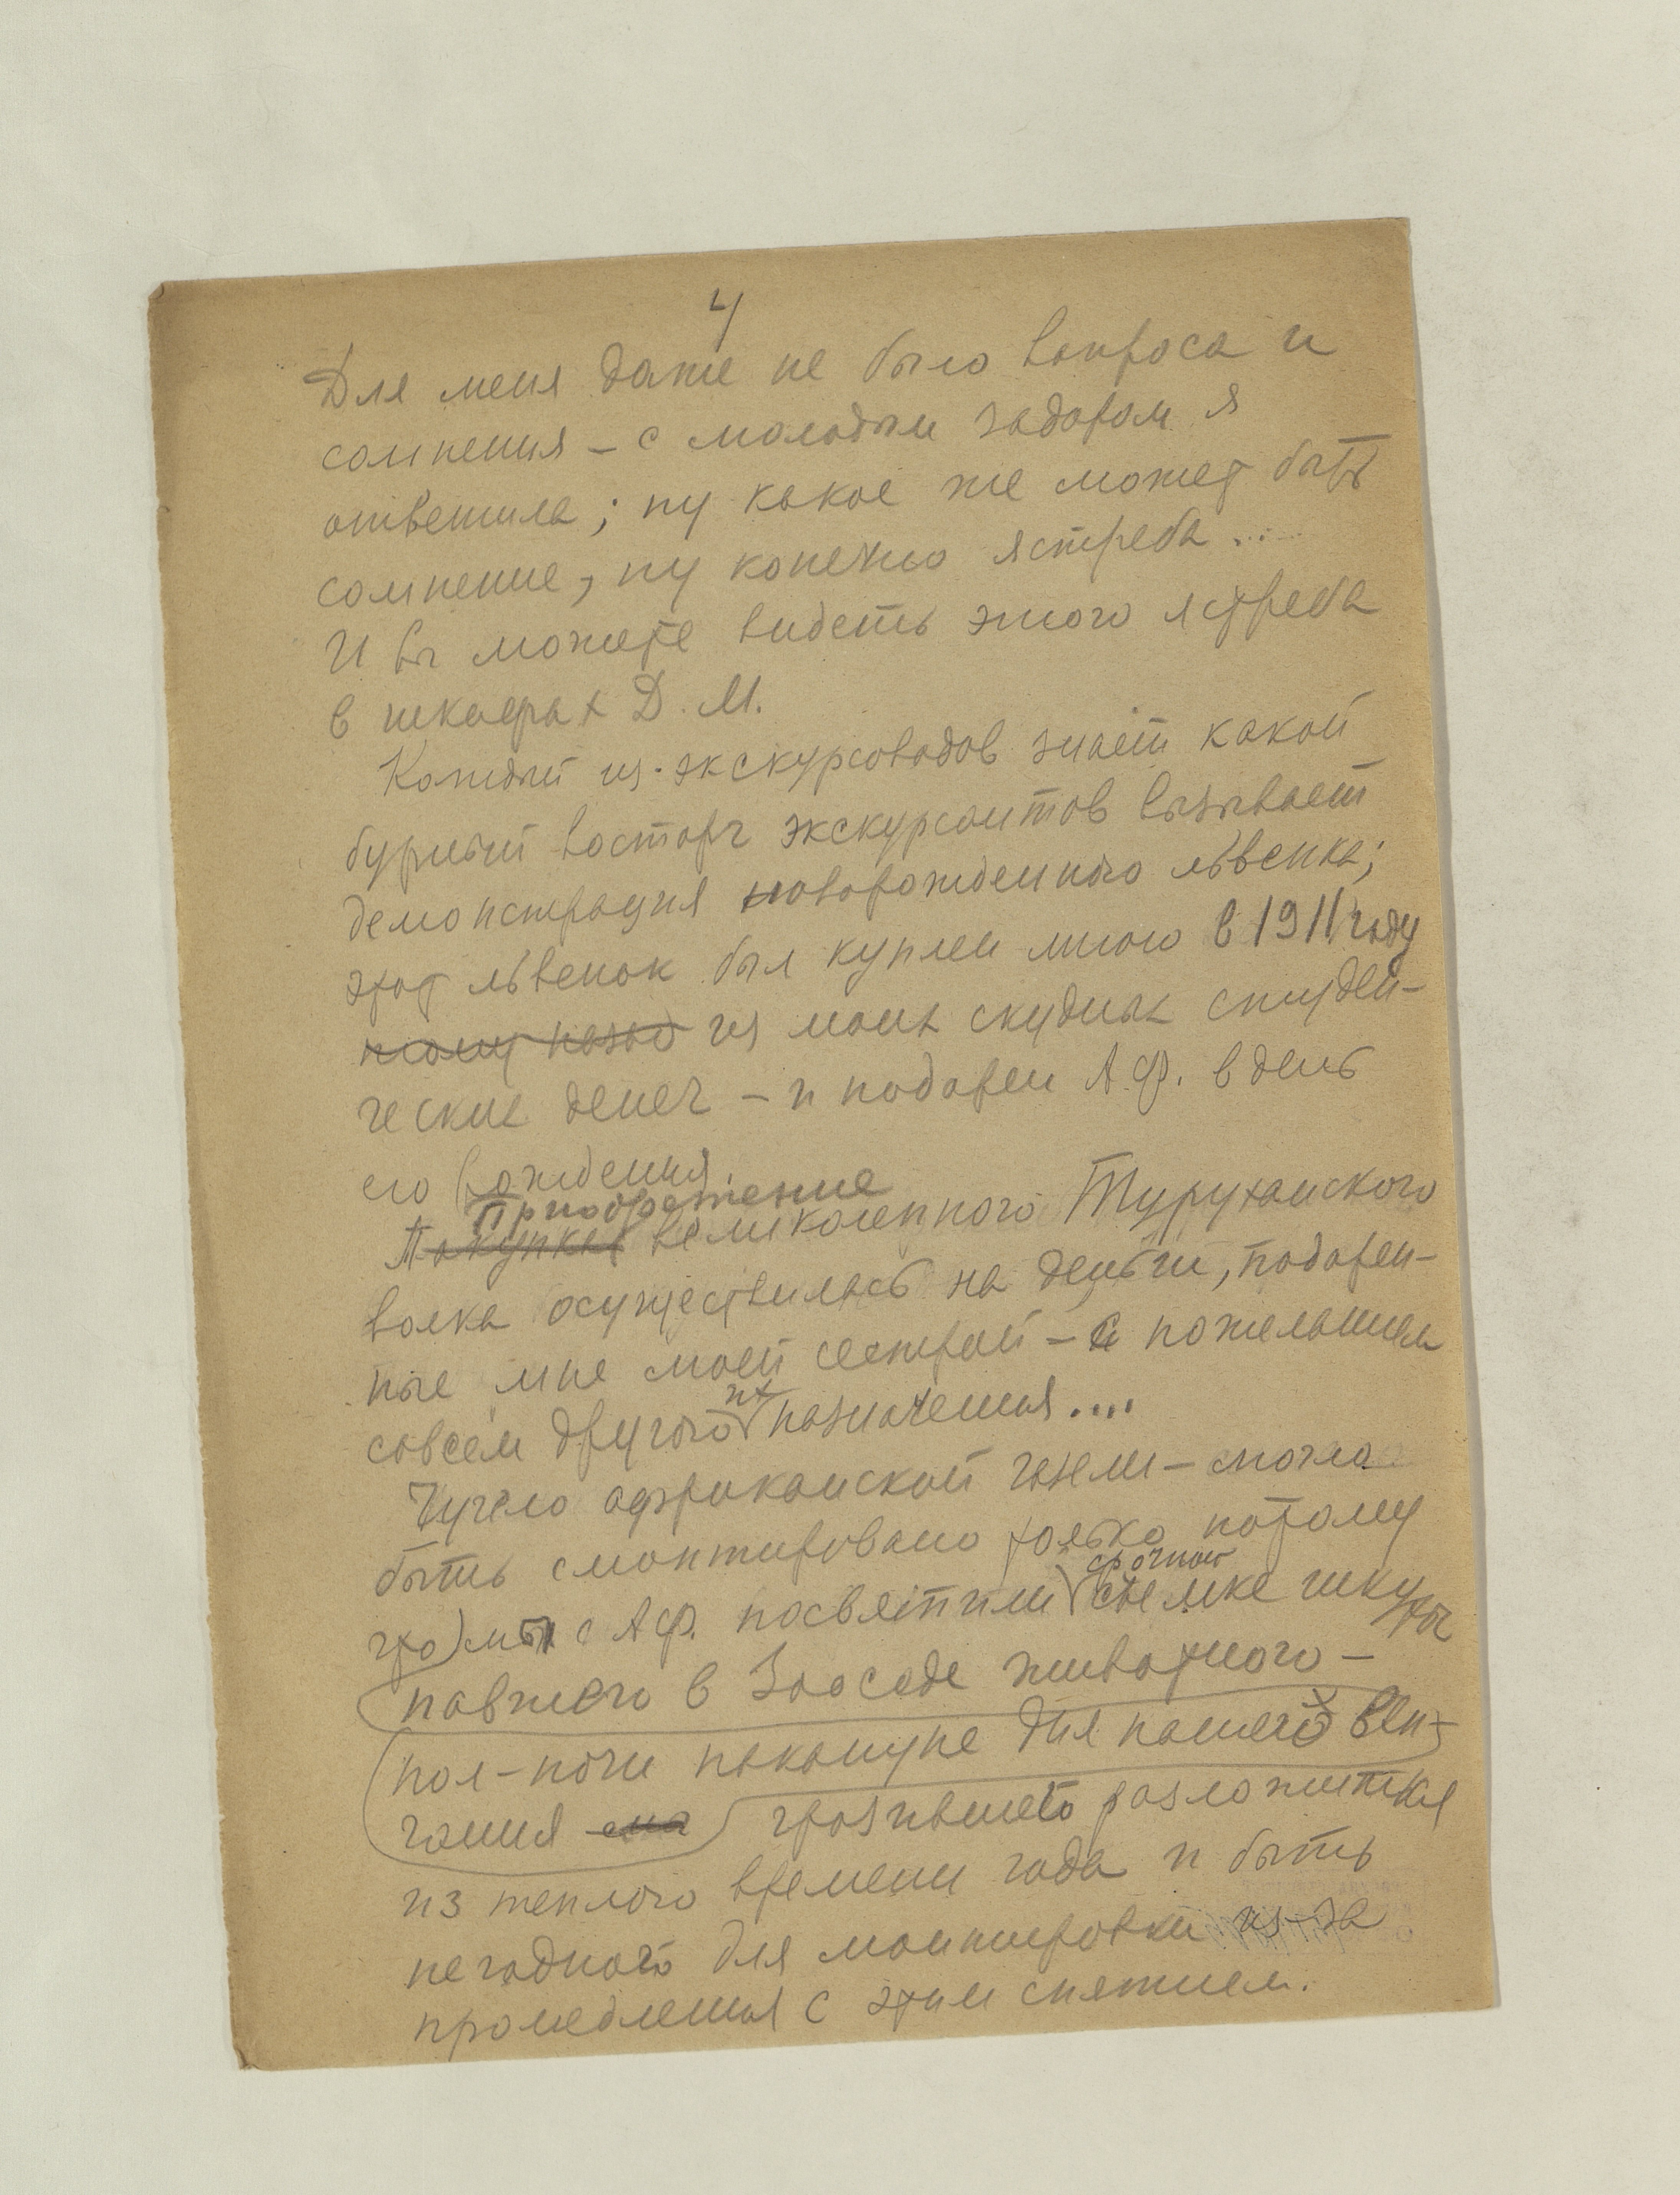 4
Для меня даже не было вопроса и
сомнения – с молодым задором я
ответила; ну какое же может быть
сомнение, ну конечно ястреба ...
И вы можете видеть этого ястреба
в шкафах Д. М.
Каждый из экскурсоводов знает какой
бурный восторг экскурсантов вызывает
демонстрация новорожденного львенка;
этот львенок был куплен мною в 1911 году
тому назад из моих скудных студен-
ческих денег – и подарен А.Ф. в день
его рождения.
Приобретение
Покупка великолепного Туруханского
волка осуществилась на деньги, подарен-
ные мне моей сестрой – с пожеланием
их
совсем другого назначения....
Чучело африканской газели – могло
быть смонтировано только потому
срочной
что) мы с А.Ф. посвятили съемке шкуры
павшего в Зоосаде животного –
пол-ночи накануне дня нашего вен-
чания грозившего разложиться
из теплого времени года и быть
негодного для монтировки из-за
промедления с этим снятием.